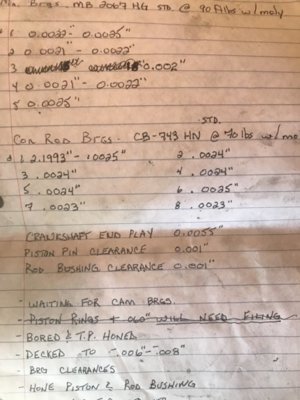 Brgs. MB 2067 HG STD. @ 90 ft lbs w/moly
1 0.0022 - 0.0025"
2 0.0021" - 0.0022"
3 0.002"
4 0.0021" - 0.0022"
5 0.0025"
STD.
Con Rod Brgs. CB-743 HN @ 70 lbs w/mo
1 2.1993" - .0025" 2 .0024"
3 .0024" 4 .0024"
5 .0024" 6 .0025"
7 .0023" 8 .0023"
CRANKSHAFT END PLAY 0.0055"
PISTON PIN CLEARANCE 0.001"
ROD BUSHING CLEARANCE 0.001"
- WAITING FOR CAM BRGS.
- PISTON RINGS + .060" WILL NEED FILING
- BORED & T.P. HONED
- DECKED TO -.006"-.008"
- BRG CLEARANCES
- HONE PISTON & ROD BUSHING